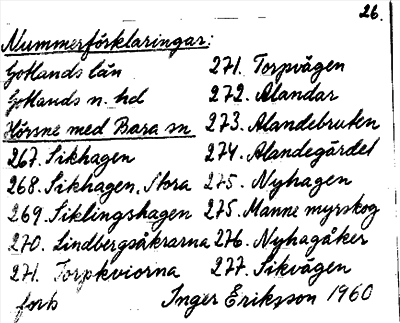 26.
Nummerförklaringar:
Gotlands län
Gotlands n. hd
Hörsne med Bara sn
267. Sikhagen
268. Sikhagen, Stora
269. Siklingshagen
270. Lindbergsåkrarna
271. Torpkviorna
forts
271. Torpvägen
272. Alandar
273. Alandebruten
274. Alandegärdet
275. Nyhagen
275. Manne myrskog
276. Nyhagåker
277. Sikvägen
Inger Eriksson 1960